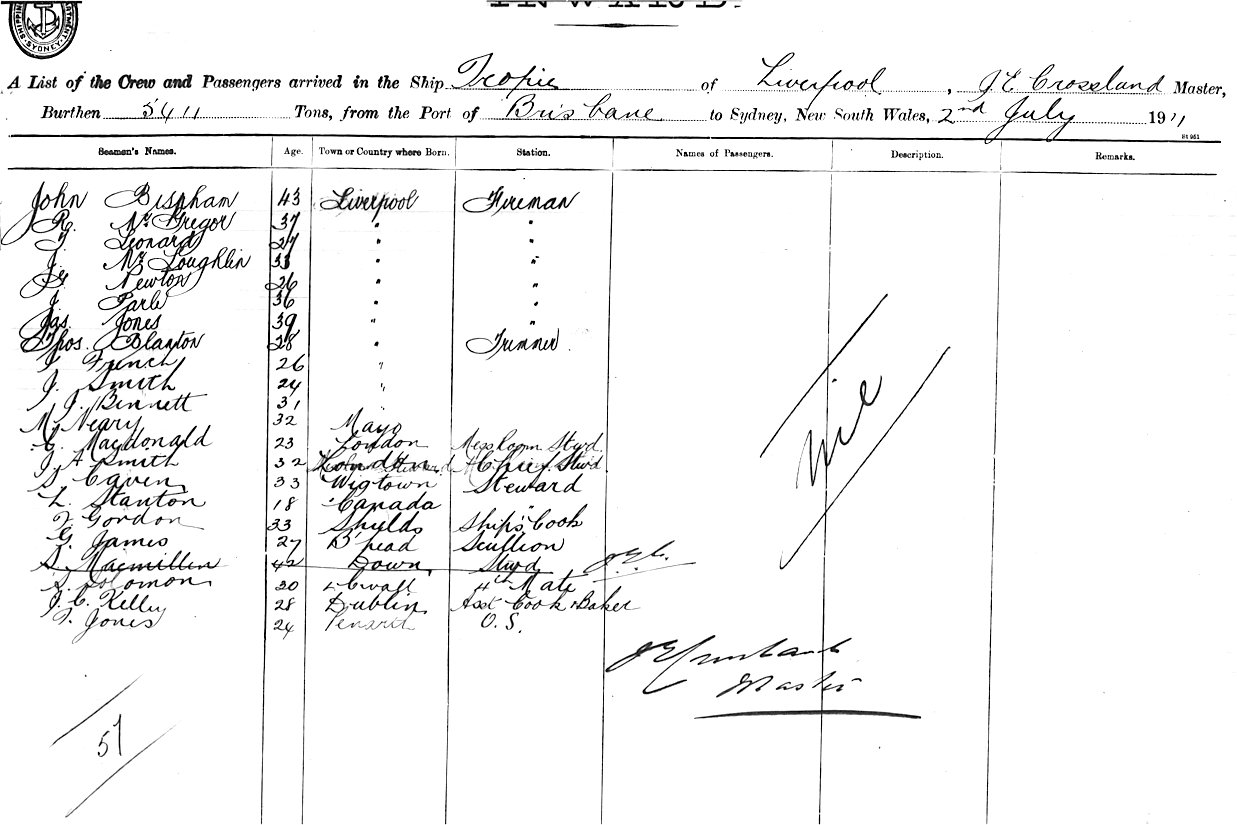 SHIPPING
SYDNEY
INWARD.
A List of the Crew and Passengers arrived in the Ship Tropic of Liverpool, J E Crossland Master,
Burthen 5411 Tons, from the Port of Brisbane to Sydney, New South Wales, 2nd July 1911
St 951
Seamen's Names. Age. Town or Country where Born. Station. Names of Passengers. Description. Remarks.
John Bispham 43 Liverpool Fireman
R. McGregor 37 " "
T. Leonard 27 " "
J. McLoughlin 33 " "
Newton 26 " "
J. Parle 36 " "
Jas. Jones 39 " "
Thos. Blanton 28 " Trimmer
French 26 "
J. Smith 24 "
J. Bennett 31 "
M. Neary 32 Mayo
C. Macdonald 23 London Messroom Stwd
J. A. Smith 32 London Chief Stwd
S. Caven 33 Wigtown Steward
L. Stanton 18 Canada "
F Gordon 33 Shields Ships Cook
G. James 27 B'head Scullion
S. Macmillen 42 Down Stwd J.E.C.
S. Solomon 20 C'wall 4th Mate
J. C. Kelly 28 Dublin Asst Cook & Baker
T. Jones 24 Penarth O.S.
Nil
J E Crossland
Master
51